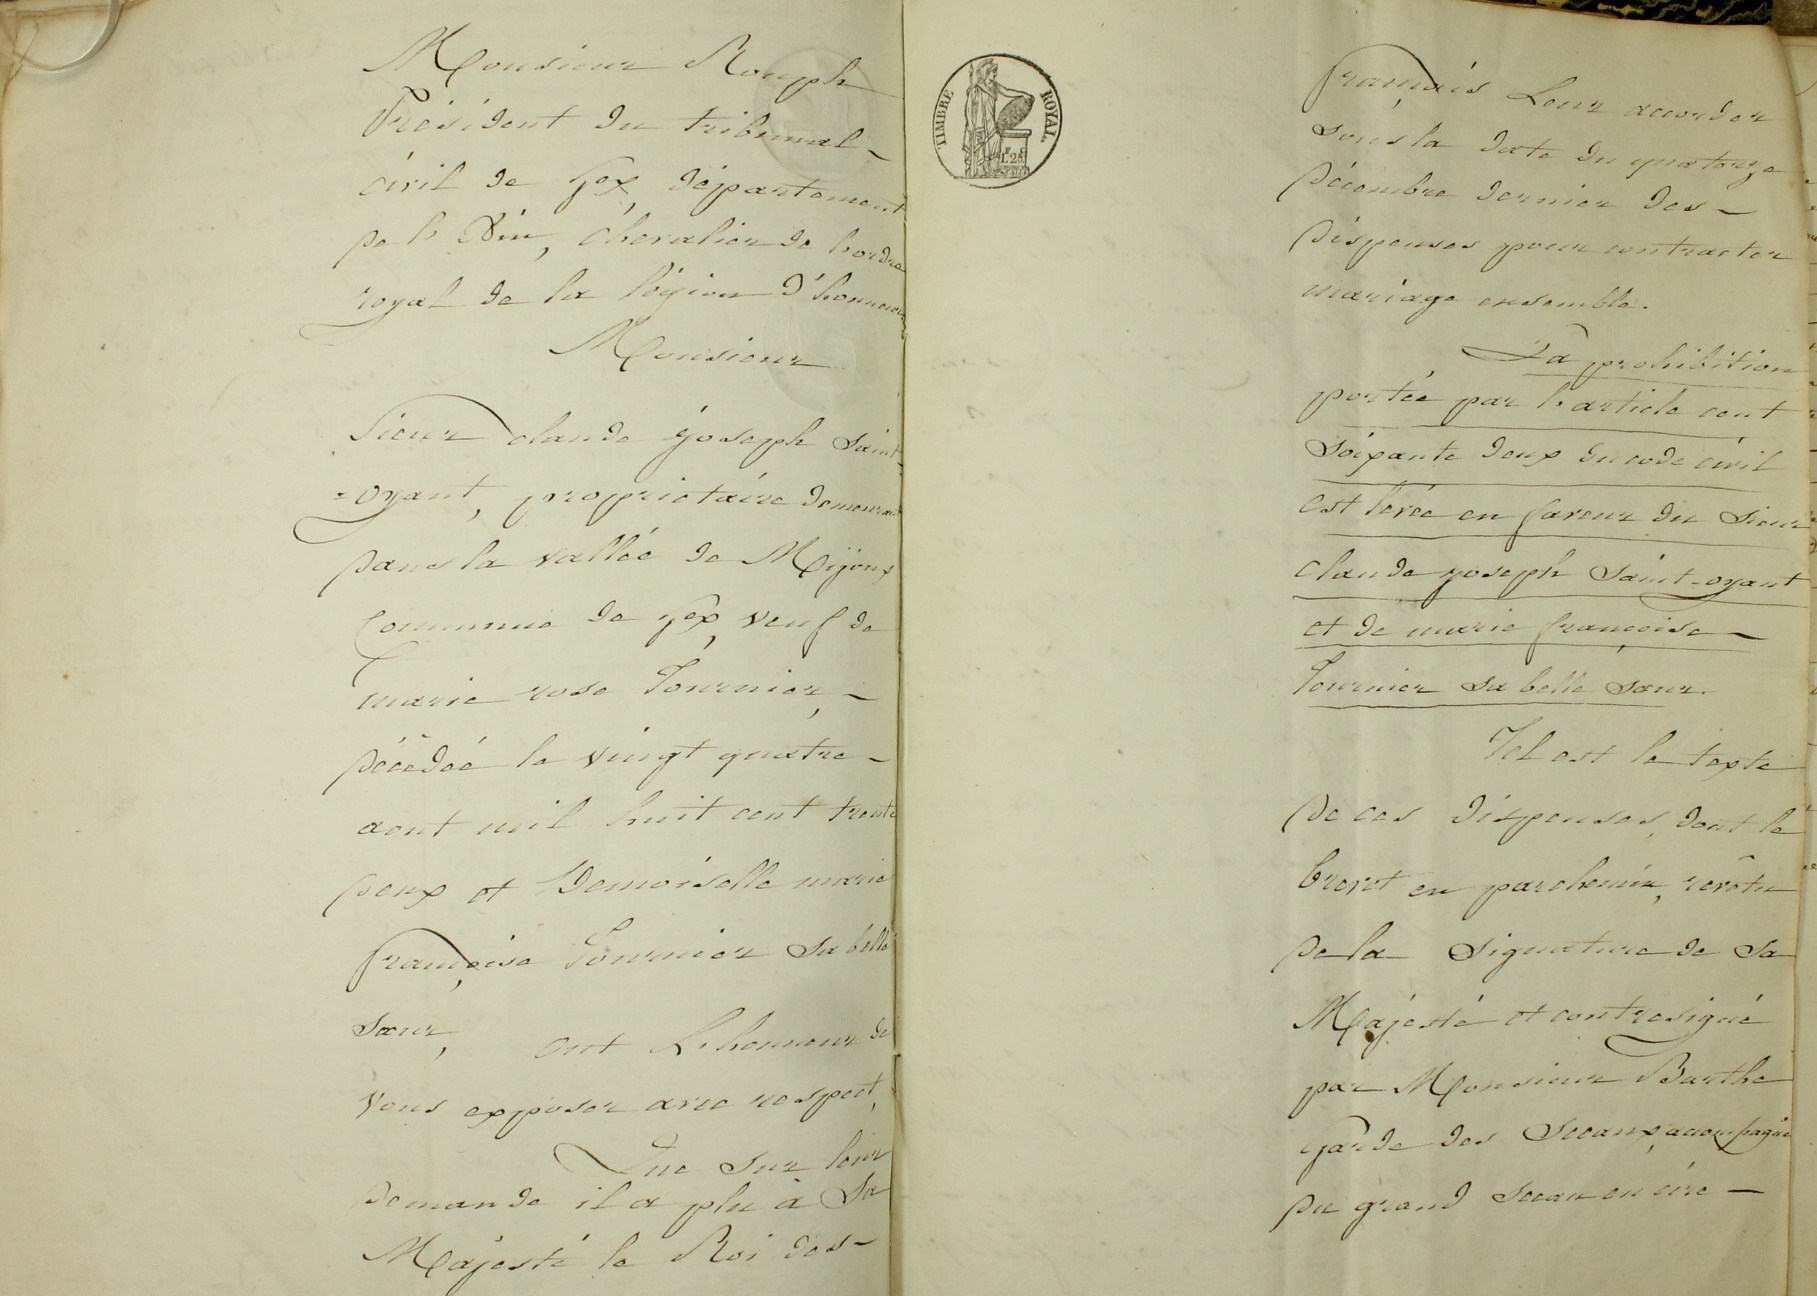 Monsieur Rouph
Président du tribunal
civil de Gex, département
de l'Ain, chevalier de l'ordre
royal de la légion d'honneur
Monsieur
Sieur claude joseph Saint-
=oyant, propriétaire demeurant
dans la vallée de Mijoux
Commune de Gex, veuf de
marie rose Fournier,
décédée le vingt quatre
aout mil huit cent trente
deux et Demoiselle marie
françoise Fournier sa belle
sœur, ont l'honneur de
vous exposer avec respect,
Que sur leur
demande il a plu à Sa
Majesté le Roi des
TIMBRE ROYAL
français leur accorder
sous la date du quatorze
décembre dernier des
dispenses pour contracter
mariage ensemble.
La prohibition
portée par l'article cent
soixante deux du code civil
est levée en faveur du Sieur
claude joseph Saint-oyant
et de marie françoise
Fournier sa belle sœur.
Tel est le texte
de ces dispenses, dont le
brevet en parchemin, revêtu
de la signature de sa
Majesté et contresigné
par Monsieur Barthe
garde des Sceaux, accompagné
du grand sceau en cire